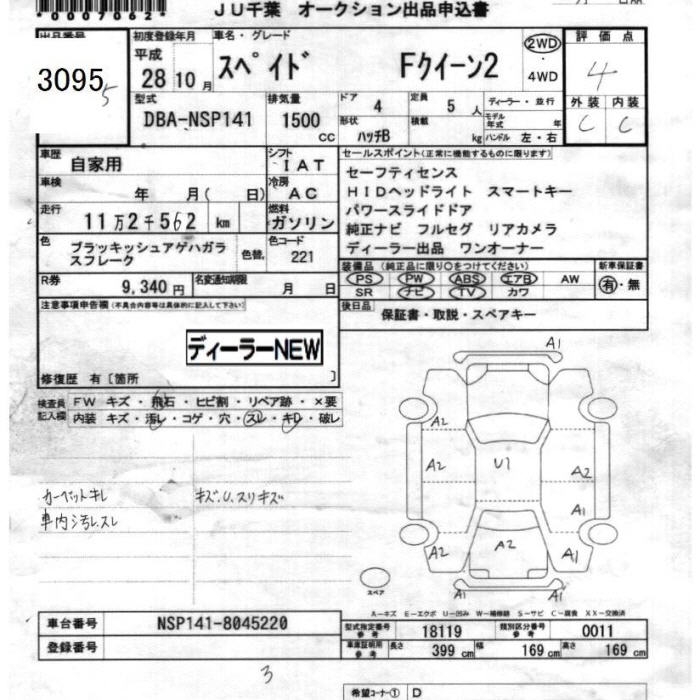 *0007062*
JU千葉 オークション出品申込書
出品番号 初度登録年月 車名・グレード 評価点
3095 5 平成 28 10月 スペイド Fクイーン2 2WD 4WD 4
型式 排気量 ドア 4 定員 5人 ディーラー・並行 外装 内装
DBA-NSP141 1500cc 形状 ハッチB 積載 kg モデル年式 年 ハンドル 左・右 C C
車歴 自家用 シフト IAT セールスポイント(正常に機能するものに限ります)
車検 年 月( 日) 冷房 AC セーフティセンス
HIDヘッドライト スマートキー
走行 11万2千562 km 燃料 ガソリン パワースライドドア
純正ナビ フルセグ リアカメラ
ディーラー出品 ワンオーナー
色 ブラッキッシュアゲハガラスフレーク 色替 色コード 221
装備品(純正品に限り○をつけてください) 新車保証書
R券 9,340円 名変通知期限 月 日 PS PW ABS エアB AW 有・無
SR ナビ TV カワ
注意事項申告欄(不具合内容等は具体的に記入して下さい) 後日品 保証書・取説・スペアキー
ディーラーNEW
修復歴 有[箇所 ]
検査員記入欄 FW キズ・飛石・ヒビ割・リペア跡・×要
内装 キズ・汚レ・コゲ・穴・スレ・キレ・破レ
カーペットキレ キズ.U.スリキズ
車内汚レスレ
A1
A2
A2 U1 A2
A1
A2 A2 A1
A1 A1
スペア
A-キズ E-エクボ U-凹み W-補修跡 S-サビ C-腐食 XX-交換済
車台番号 NSP141-8045220 型式指定番号 参考 18119 類別区分番号 参考 0011
登録番号 車庫証明用 参考 長さ 399cm 幅 169cm 高さ 169cm
3
希望コーナー① D